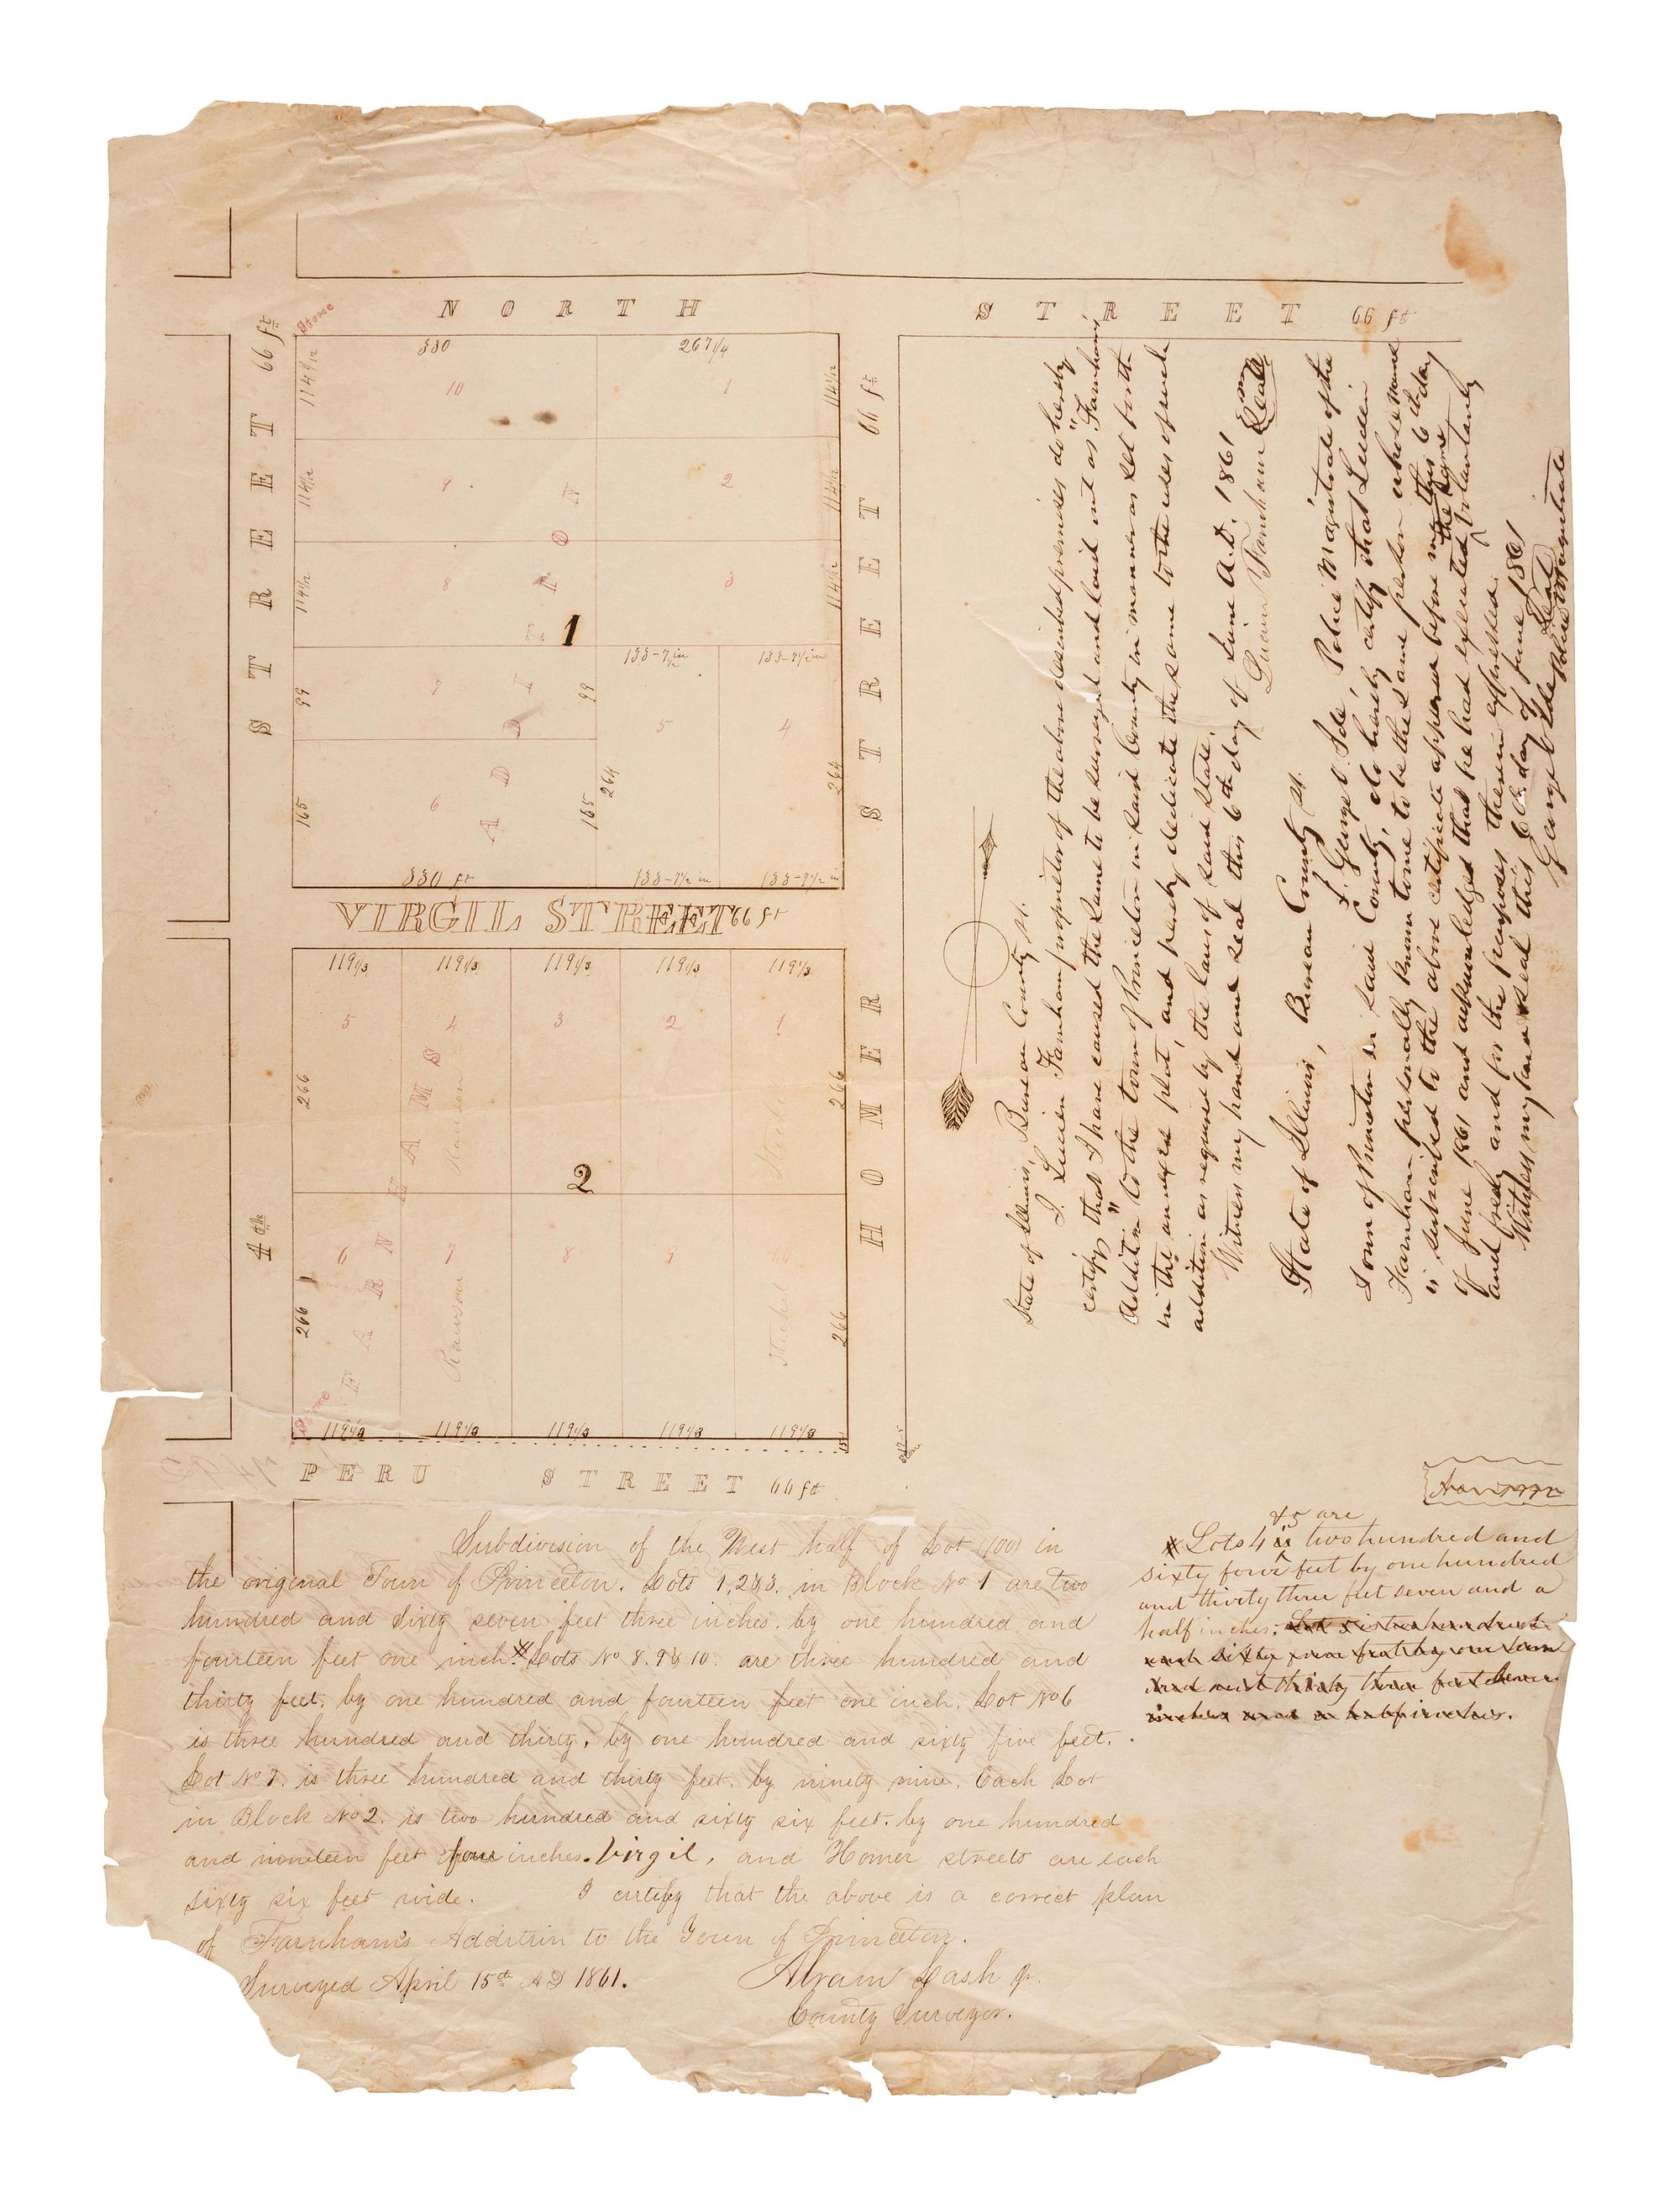 NORTH STREET 66 ft
STREET 66 ft
4th
Stone
330
267 1/4
114 1/12
10
1
114 1/12
114 1/12
9
2
114 1/12
114 1/12
8
3
114 1/12
1
133-7 1/2 in
133-7 1/2 in
99
7
99
5
4
165
6
165
264
264
330 ft
133-7 1/2 in
133-7 1/2 in
VIRGIL STREET 66 ft
HOMER STREET 66 ft
FARNHAMS ADDITION
119 1/3
119 1/3
119 1/3
119 1/3
119 1/3
5
4
3
2
1
266
266
2
6
7
8
9
266
Rawson
266
Stone
119 1/3
119 1/3
119 1/3
119 1/3
119 1/3
PERU STREET 66 ft
Subdivision of the West half of Lot 100 in
the original Town of Princeton. Lots 1, 2 & 3. in Block No 1 are two
hundred and Sixty seven feet three inches. by one hundred and
fourteen feet one inch. Lots No 8. 9 & 10. are three hundred and
thirty feet. by one hundred and fourteen feet one inch. Lot No 6
is three hundred and thirty, by one hundred and sixty five feet.
Lot No 7. is three hundred and thirty feet. by ninety nine. Each Lot
in Block No 2. is two hundred and sixty six feet. by one hundred
and nineteen feet four inches. Virgil, and Homer streets are each
sixty six feet wide. I certify that the above is a correct plan
of Farnham's Addition to the Town of Princeton.
Surveyed April 15th AD 1861. Alram Lash Jr.
County Surveyor.
& 5 are
Lots 4 is two hundred and
sixty four feet by one hundred
and thirty three feet seven and a
half inches. Lot 5 is two hundred
and sixty four feet by one hun
dred and thirty three feet seven
inches and a half inches.
State of Illinois, Bureau County ss.
I Lucien Farnham proprietor of the above described premises do hereby
certify that I have caused the same to be surveyed and laid out as "Farnham's
Addition" to the town of Princeton in said County in manner as set forth
in the annexed plat, and hereby dedicate the same to the uses of such
addition as required by the laws of said State.
Witness my hand and seal this 6th day of June A.D. 1861
Lucien Farnham Seal
State of Illinois, Bureau County ss.
I, George O. Ide, Police Magistrate of the
Town of Princeton in said County, do hereby certify that Lucien
Farnham personally known to me to be the same person whose name
is subscribed to the above certificate appeared before me this 6th day
of June 1861 and acknowledged that he had executed the same voluntarily
and freely and for the purposes therein expressed.
Witness my hand & seal this 6th day of June 1861
George O. Ide Seal
Police Magistrate